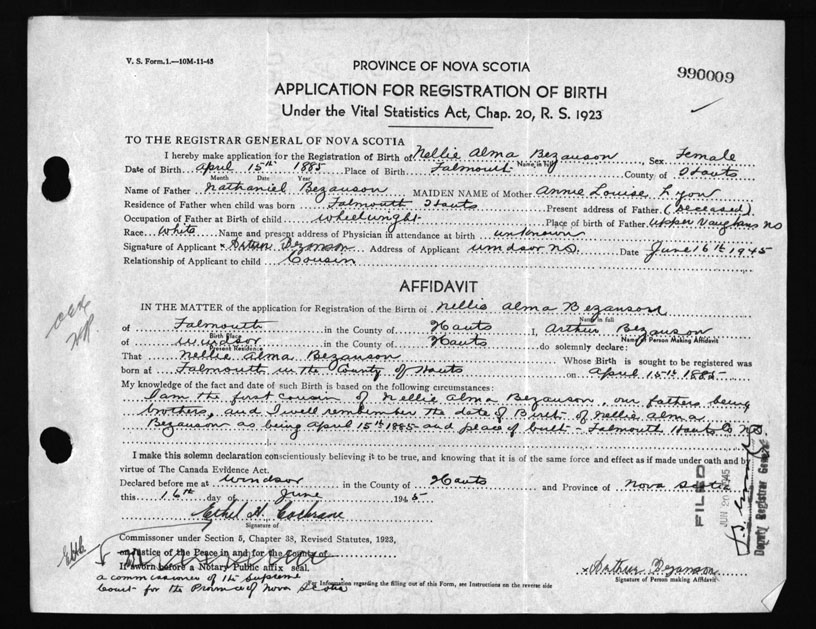 V. S. Form.1.—10M-11-43
PROVINCE OF NOVA SCOTIA
990009
APPLICATION FOR REGISTRATION OF BIRTH
Under the Vital Statistics Act, Chap. 20, R. S. 1923
TO THE REGISTRAR GENERAL OF NOVA SCOTIA
I hereby make application for the Registration of Birth of Nellie Alma Bezanson, Sex Female
Name in full
Date of Birth April 15th 1885 Place of Birth Falmouth County of Hants
Month Date Year
Name of Father Nathaniel Bezanson MAIDEN NAME of Mother Annie Louise Lyon
Residence of Father when child was born Falmouth Hants Present address of Father (Deceased)
Occupation of Father at Birth of child wheelwright Place of birth of Father upper Vaughans NS
Race White Name and present address of Physician in attendance at birth unknown
Signature of Applicant x Arthur Bezanson Address of Applicant Windsor NS. Date June 16th 1945
Relationship of Applicant to child Cousin
AFFIDAVIT
IN THE MATTER of the application for Registration of the Birth of Nellie Alma Bezanson
Name in full
of Falmouth in the County of Hants I, Arthur Bezanson
Birth Place Name of Person Making Affidavit
of Windsor in the County of Hants do solemnly declare:
Present Residence
That Nellie Alma Bezanson Whose Birth is sought to be registered was
born at Falmouth in the County of Hants on April 15th 1885
My knowledge of the fact and date of such Birth is based on the following circumstances:
I am the first cousin of Nellie Alma Bezanson, our fathers being
brothers, and I well remember the date of Birth of Nellie Alma
Bezanson as being April 15th 1885 and place of birth - Falmouth Hants Co NS
I make this solemn declaration conscientiously believing it to be true, and knowing that it is of the same force and effect as if made under oath and by
virtue of The Canada Evidence Act.
Declared before me at Windsor in the County of Hants and Province of Nova Scotia
this 16th day of June 1945
Ethel H. Cochrane
Signature of
Commissoner under Section 5, Chapter 38, Revised Statutes, 1923,
or Justice of the Peace in and for the County of
If sworn before a Notary Public affix seal.
a commissioner of the Supreme
Court for the Province of Nova Scotia
For Information regarding the filling out of this Form, see Instructions on the reverse side
x Arthur Bezanson
Signature of Person making Affidavit
FILED
JUN 20 1945
Deputy Registrar General